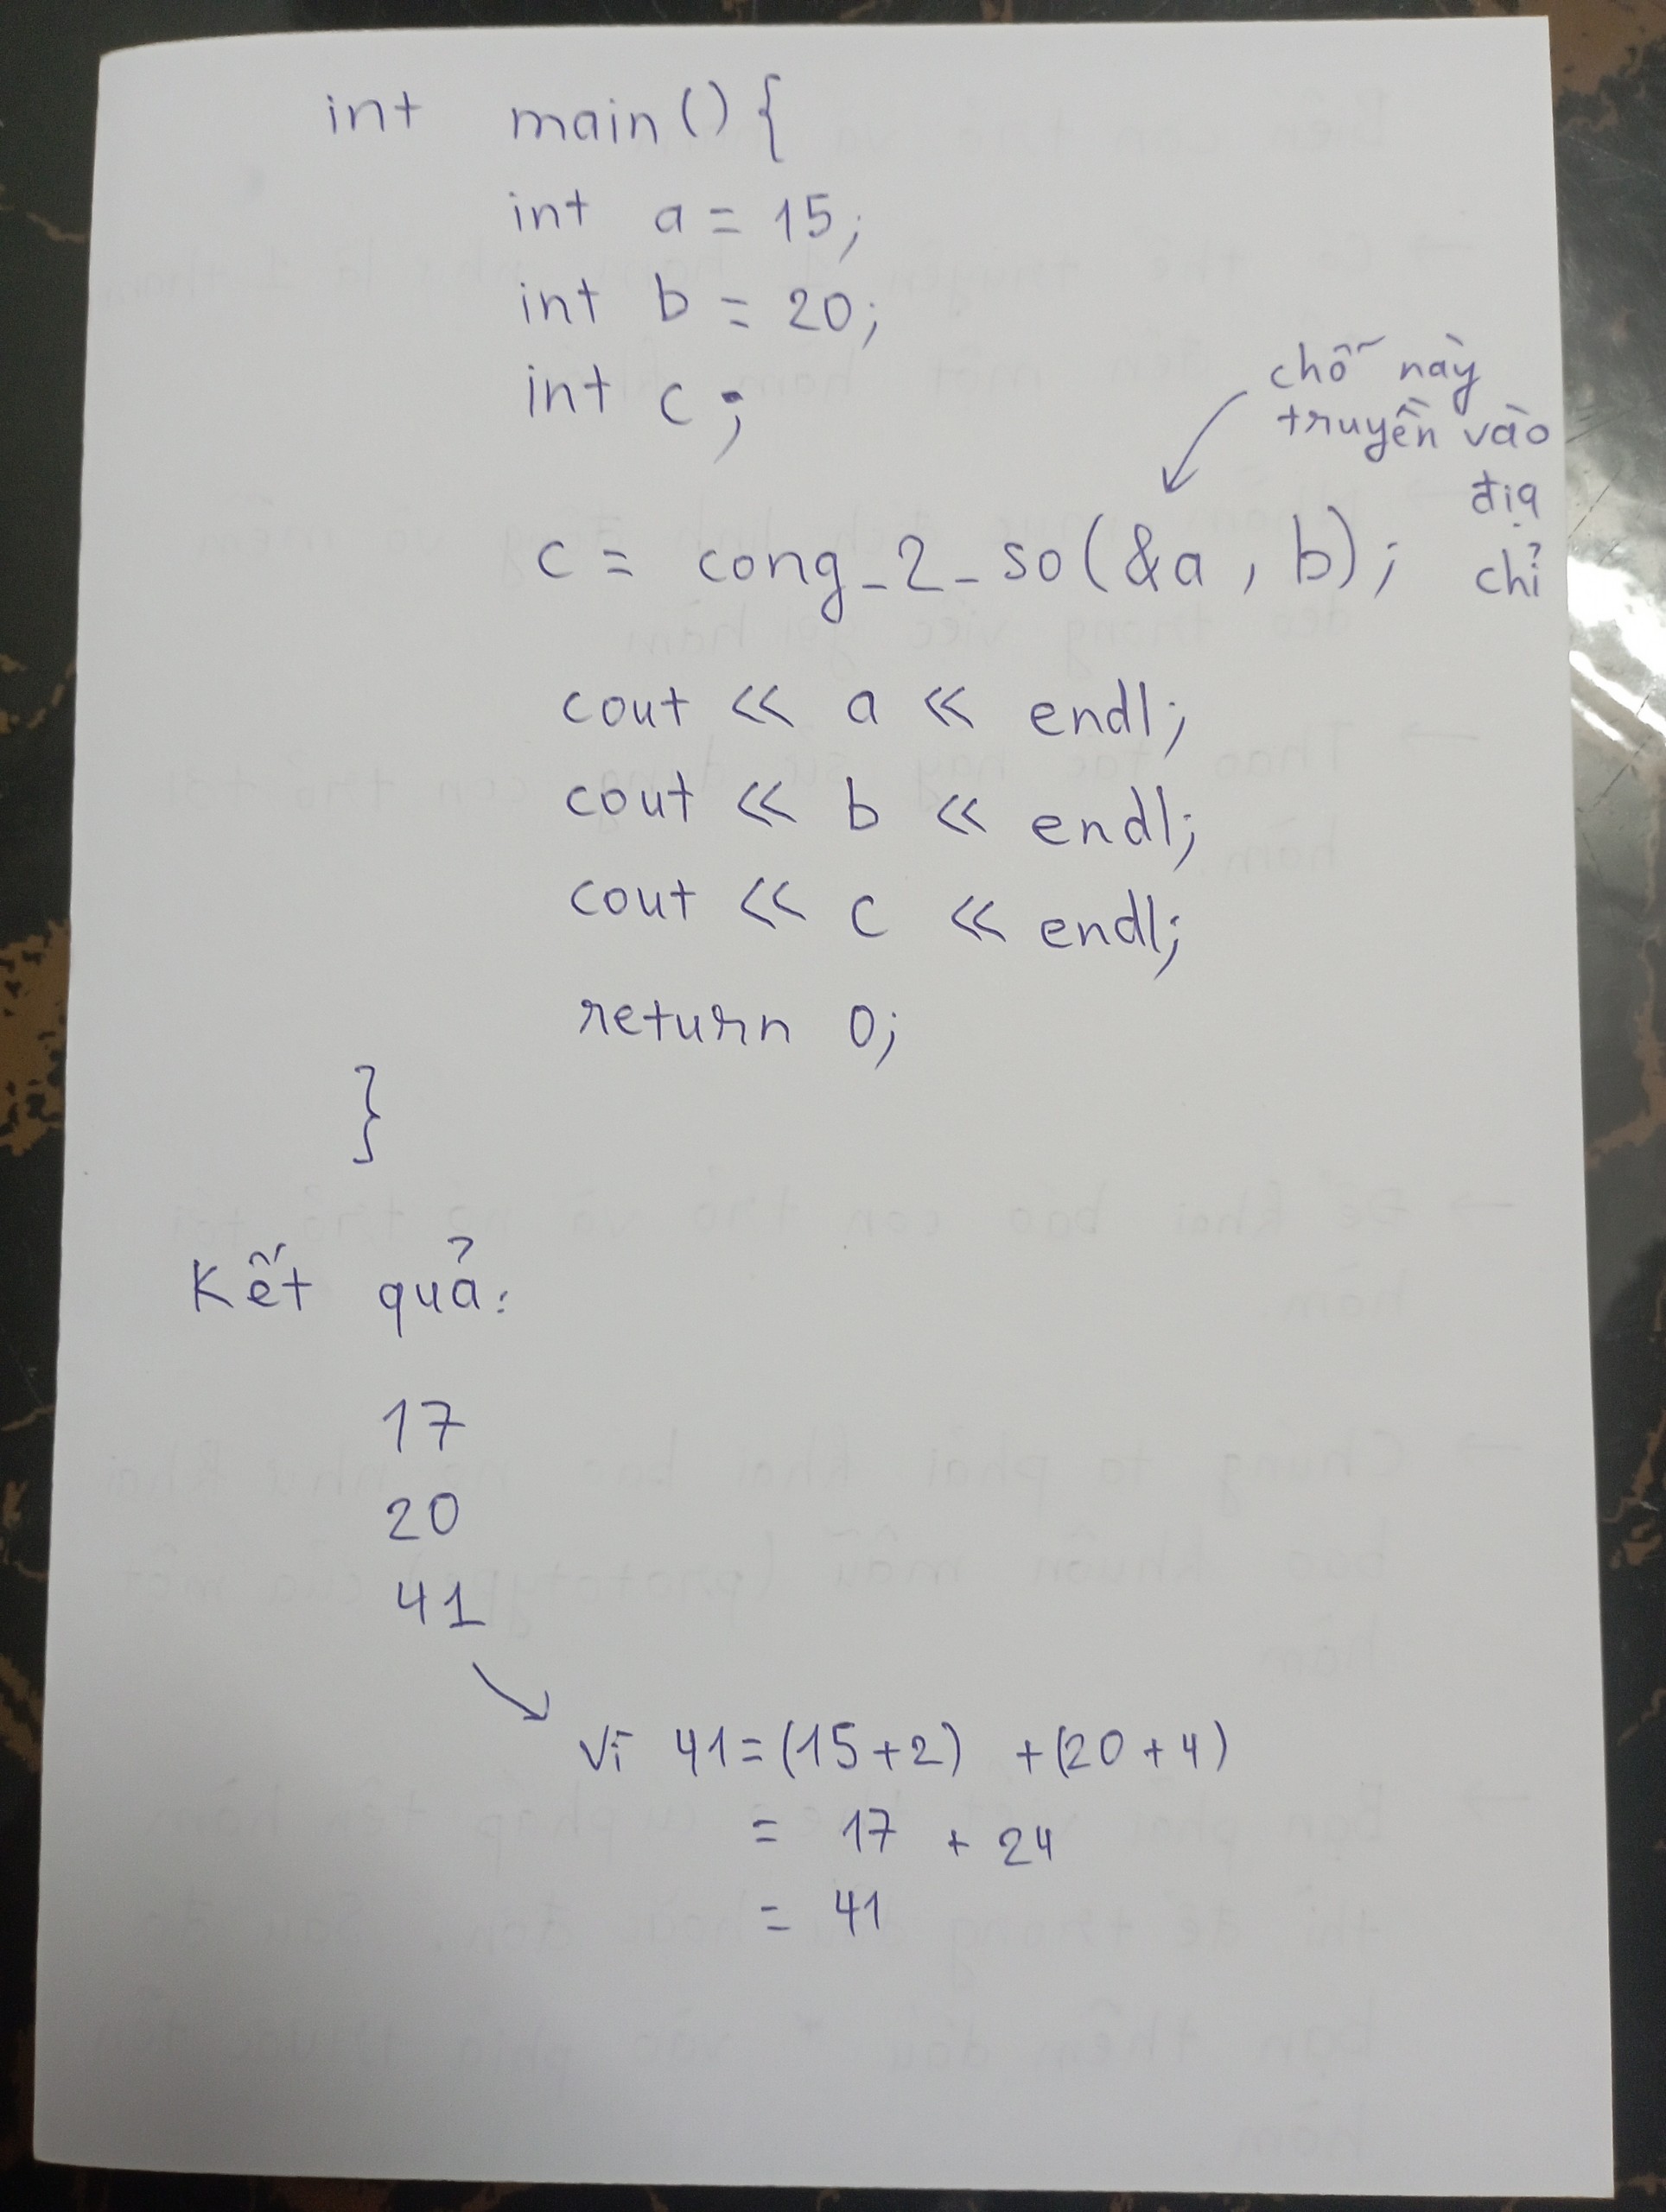 int main(){
int a = 15;
int b = 20;
int c;
chỗ này
truyền vào
địa
chỉ
c = cong_2_so(&a, b);
cout << a << endl;
cout << b << endl;
cout << c << endl;
return 0;
}
Kết quả:
17
20
41
Vì 41=(15+2) +(20+4)
= 17 + 24
= 41